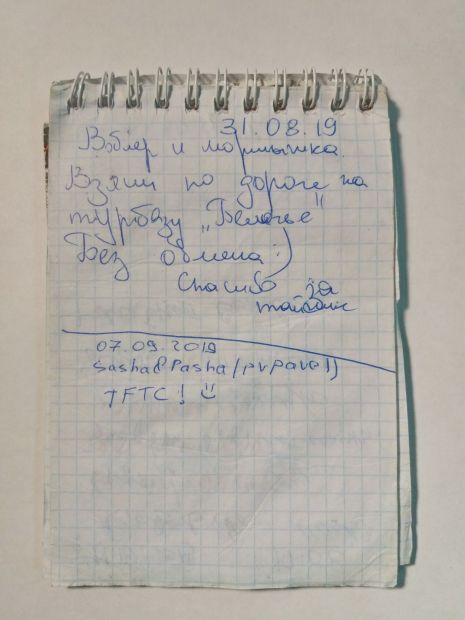 31.08.19
Воблер и мормышка.
Взяли по дороге на
турбазу „Беличье"
Без обмена :)
Спасибо за
тайник
07.09.2019
Sasha&Pasha/pvpavel)
TFTC! ☺